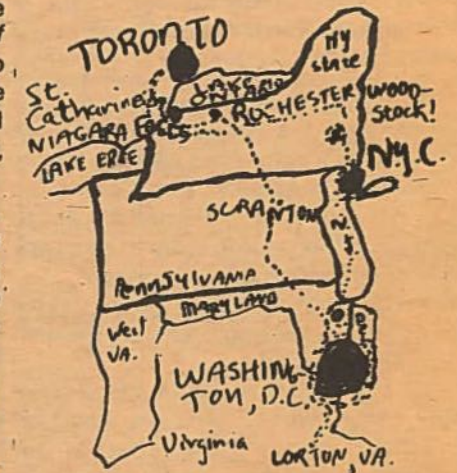 TORONTO
NY
State
St.
Catharines
LAKE
ONTARIO
ROCHESTER
WOOD-
Stock!
NIAGARA FALLS
LAKE ERIE
N.Y.C.
SCRANTON
N.J.
PennsylVANIA
MARYLAND
West
VA.
WASHING-
TON, D.C.
Virginia
LORTON, VA.